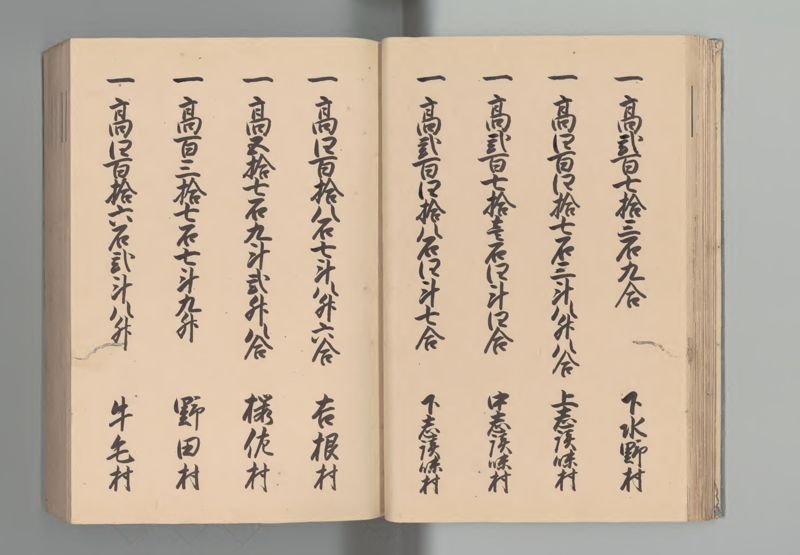 一 高弐百七拾三石九合 下水野村
一 高四百四拾七石三斗八升八合 上志談味村
一 高弐百七拾壱石四斗四合 中志談味村
一 高弐百四拾八石四斗七合 下志談味村
一 高四百拾八石七斗八升六合 吉根村
一 高五拾七石九斗弐升八合 桜佐村
一 高百三拾七石七斗九升 野田村
一 高四百拾六石弐斗八升 牛毛村